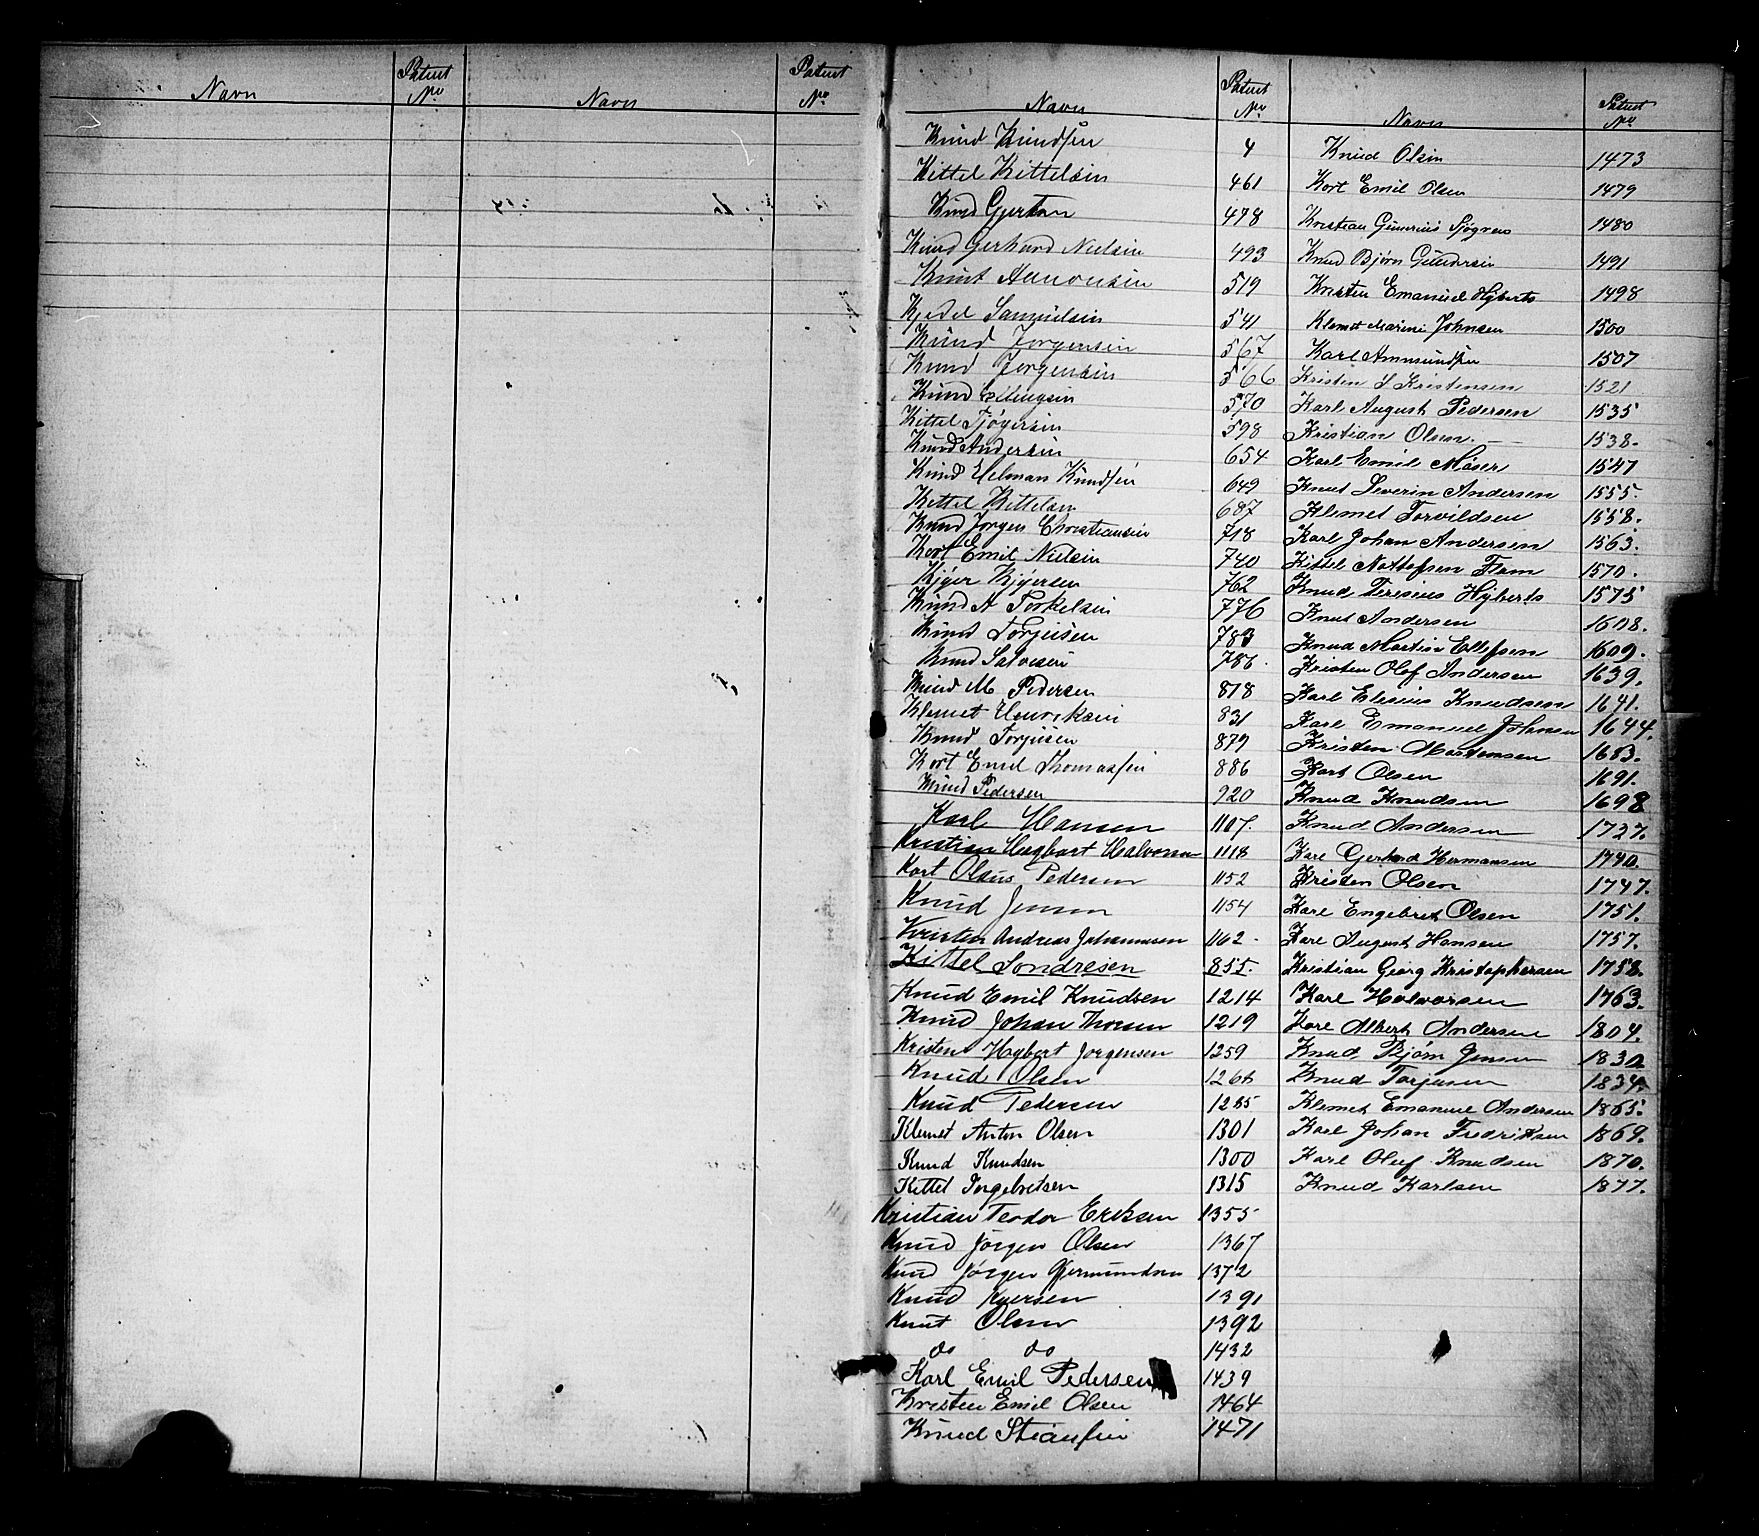 Navn Patent No Navn Patent No
Navn Patent No
Knud Knudsen 4
Kittel Kittelsen 461
Knud Gjertsen 478
Knud Gerhard Nielsen 493
Knut Aanonsen 519
Kjedel Samuelsen 541
Knud Jorgensen 567
Knud Jorgensen 566
Knud Ellingsen 570
Kittel Tjøgersen 598
Knud Andersen 654
Knud Helman Knudsen 649
Kittel Kittelsen 687
Knud Jørgen Christiansen 718
Kort Emil Nielsen 740
Kjøer Kjøersen 762
Knud A Torkelsen 776
Knud Torjusen 783
Knud Salvesen 786
Knud M Pedersen 818
Klemet Henriksen 831
Knud Torjusen 879
Kort Emil Thomassen 886
Knud Pedersen 920
Karl Hansen 1107.
Kristian Hagbart Halvorsen 1118
Kort Olaus Pedersen 1152
Knud Jensen 1154
Kristen Andreas Johannesen 1162
Kittel Sondresen 855.
Knud Emil Knudsen 1214
Knud Johan Thorsen 1219
Kristen Hybert Jorgensen 1259
Knud Olsen 126
Knud Pedersen 1285
Klemet Anton Olsen 1301
Knud Knudsen 1300
Kittel Ingebretsen 1315
Kristian Teodor Eriksen 1355
Knud Jörgen Olsen 1367
Knud Jörgen Gjermundsen 1372
Knud Kjersen 1391
Knut Olsen 1392
do do 1432
Karl Emil Pedersen 1439
Kristen Emil Olsen 1464
Knud Stiansen 1471
Navn Patent No
Knud Olsen 1473
Kort Emil Olsen 1479
Kristian Gunerius Sjøgren 1480
Knud Bjørn Gundersen 1491
Kristen Emanuel Hyberts 1498
Klemet Marini Johnsen 1500
Karl Ammundsen 1507
Kristen S Kristensen 1521
Karl August Pedersen 1535
Kristian Olsen 1538.
Karl Emil Möser 1547
Knut Severin Andersen 1555.
Klemet Torvildsen 1558.
Karl Johan Andersen 1563.
Kittel Nottofsen Flom 1570.
Knud Terisius Hyberts 1575
Knut Andersen 1608.
Knud Martin Ellefsen 1609.
Kristen Olaf Andersen 1639.
Karl Elesius Knudsen 1641.
Karl Emanuel Johnsen 1644.
Kristen Mortensen 1683.
Kort Olsen 1691.
Knud Knudsen 1698
Knud Andersen 1727.
Karl Gerhard Hermansen 1740.
Kristen Olsen 1747.
Karl Engebret Olsen 1751.
Karl August Hansen 1757.
Kristian Georg Kristophersen 1758.
Karl Halvorsen 1763.
Karl Albert Andersen 1804.
Knud Bjørn Jensen 1830
Knud Torjusen 1834.
Klemet Emanuel Andersen 1865.
Karl Johan Fredriksen 1869.
Karl Oluf Knudsen 1870.
Knud Karlsen 1877.